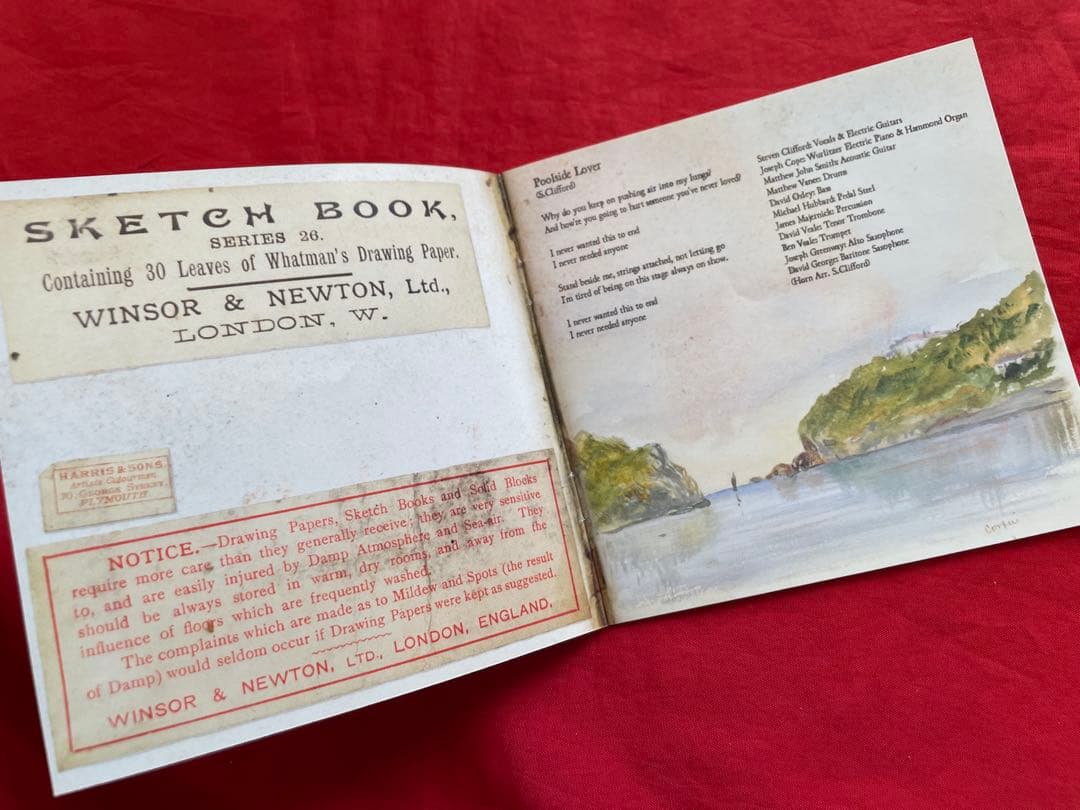 SKETCH BOOK,
SERIES 26.
Containing 30 Leaves of Whatman's Drawing Paper.
WINSOR & NEWTON, Ltd.,
LONDON, W.
HARRIS & SONS
Artists Colourmen,
GEORGE STREET
PLYMOUTH
NOTICE.—Drawing Papers, Sketch Books and Solid Blocks
require more care than they generally receive; they are very sensitive
to, and are easily injured by Damp Atmosphere and Sea-air. They
should be always stored in warm, dry rooms, and away from the
influence of floors which are frequently washed.
The complaints which are made as to Mildew and Spots (the result
of Damp) would seldom occur if Drawing Papers were kept as suggested.
WINSOR & NEWTON, LTD., LONDON, ENGLAND.
Poolside Lover
(S.Clifford)
Why do you keep on pushing air into my lungs?
And how're you going to hurt someone you've never loved?
I never wanted this to end
I never needed anyone
Stand beside me, strings attached, not letting go
I'm tired of being on this stage always on show.
I never wanted this to end
I never needed anyone
Steven Clifford: Vocals & Electric Guitars
Joseph Cope: Wurlitzer Electric Piano & Hammond Organ
Matthew John Smith: Acoustic Guitar
Matthew Vanes: Drums
David Oxley: Bass
Michael Hubbard: Pedal Steel
James Majernick: Percussion
David Veale: Tenor Trombone
Ben Veale: Trumpet
Joseph Greenway: Alto Saxophone
David George: Baritone Saxophone
(Horn Arr. S.Clifford)
Corfu